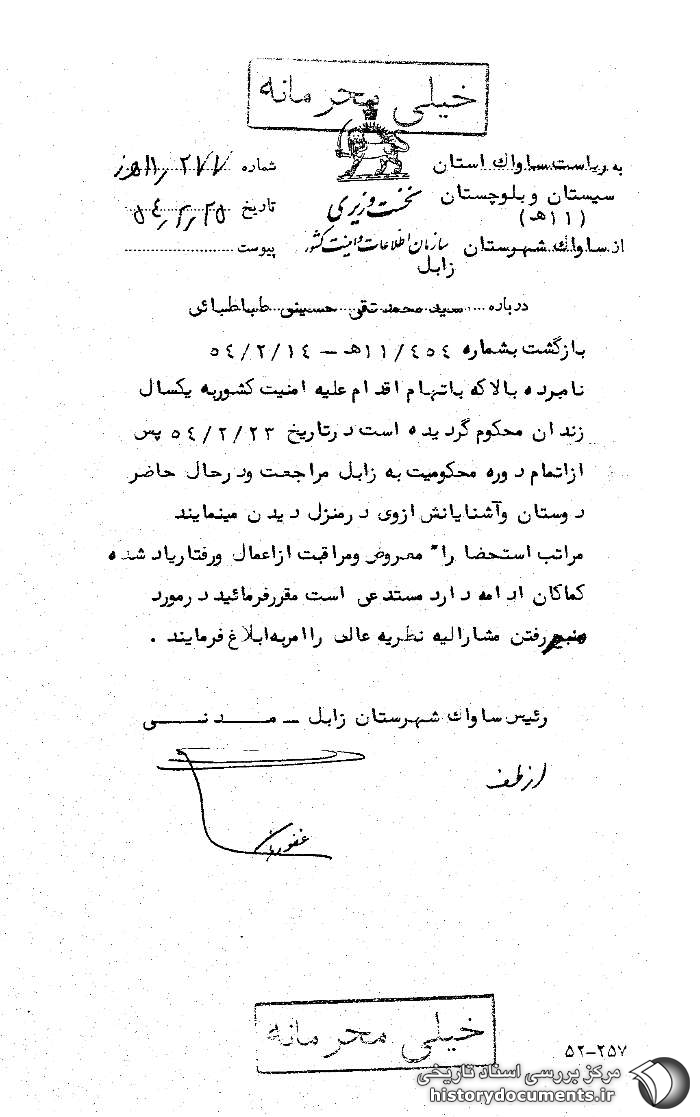 خیلی محرمانه
به ریاست ساواک استان
سیستان و بلوچستان
(۱۱ هـ)
از ساواک شهرستان
زابل
نخست وزیری
سازمان اطلاعات و امنیت کشور
شماره ۲۷۷
تاریخ
پیوست
درباره سید محمد تقی حسینی طباطبائی
بازگشت بشماره ۱۱/۴۵۴هـ – ۵۴/۲/۱۴
نامبرده بالا که باتهام اقدام علیه امنیت کشور به یکسال
زندان محکوم گردیده است در تاریخ ۵۴/۲/۲۳ پس
از اتمام دوره محکومیت به زابل مراجعت و در حال حاضر
دوستان و آشنایانش از وی در منزل دیدن مینمایند
مراتب استحضارا" معروض و مراقبت از اعمال و رفتار یاد شده
کماکان ادامه دارد مستدعی است مقرر فرمائید در مورد
منبر رفتن مشارالیه نظریه عالی را امر به ابلاغ فرمایند .
رئیس ساواک شهرستان زابل – مدنی
از طرف
خیلی محرمانه
۵۲-۲۵۷
مرکز بررسی اسناد تاریخی
historydocuments.ir